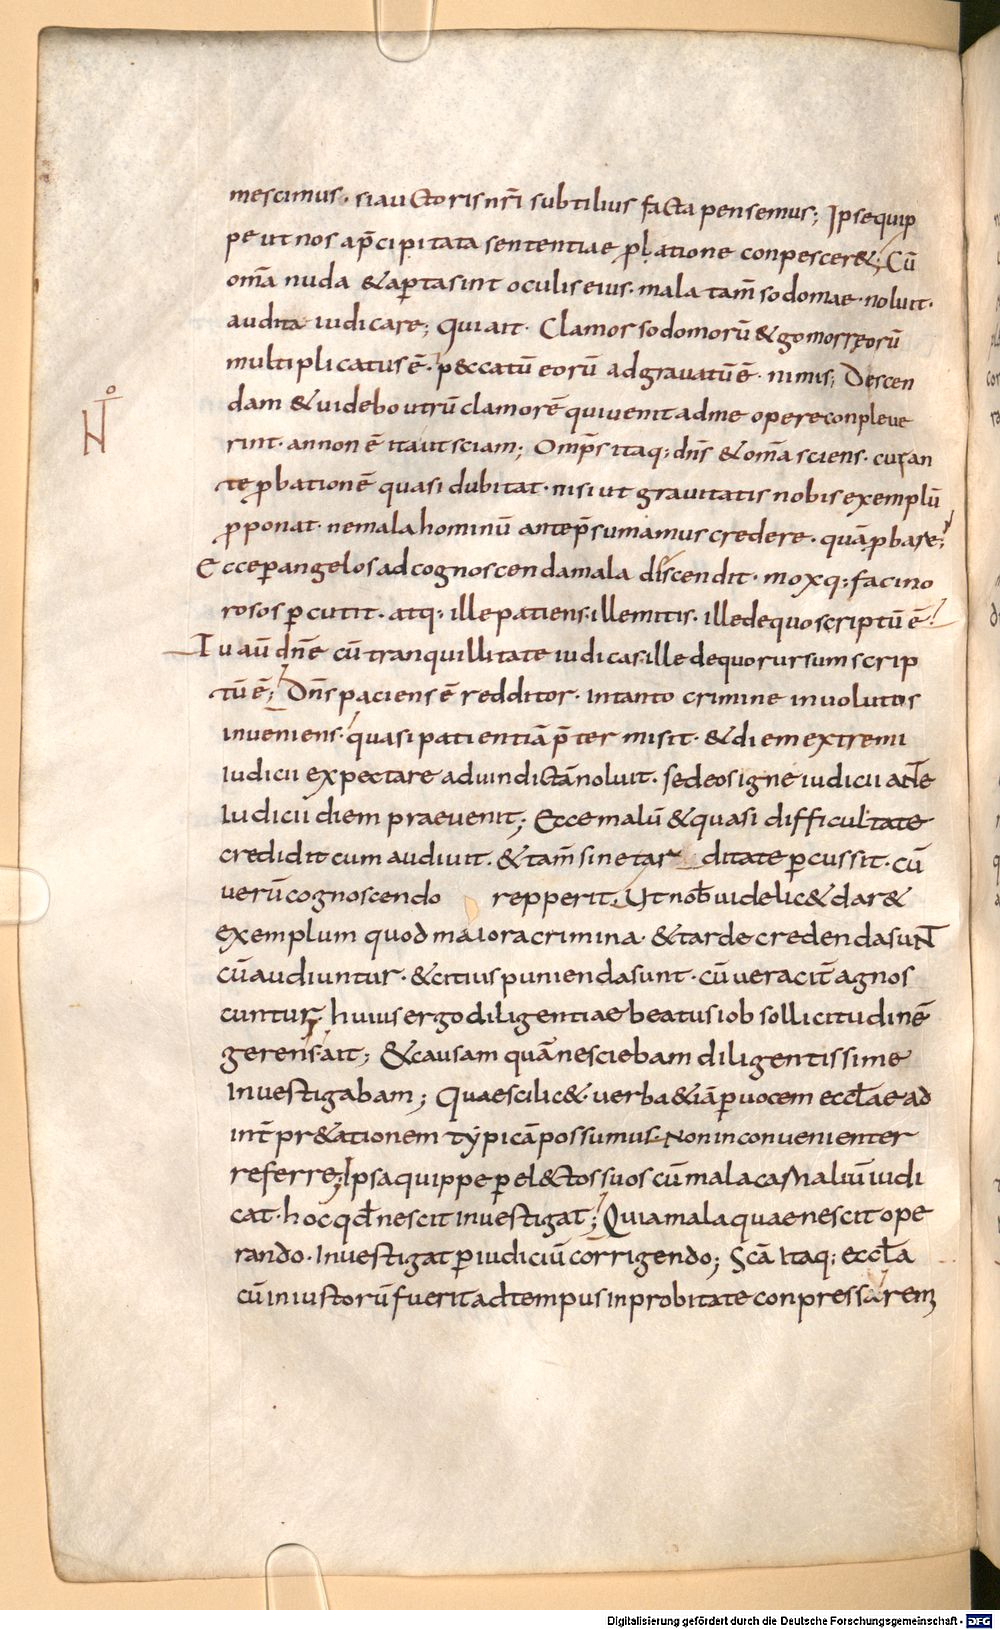 mescimus. si auctoris nr̄i subtilius facta pensemus; Ipse quip
pe ut nos a p̄cipitata sententiae ꝓlatione conpescer&; Cū
om̄a nuda & aꝑta sint oculis eius. mala tam̄ sodomae. noluit.
audita iudicare; Qui ait. Clamor sodomorū & gomorreorū
multiplicatus ē. & peccatū eorū adgravatū ē. nimis; Descen
dam & videbo utrū clamorē qui venit ad me opere conpleve
rint. an non ē ita ut sciam; Omp̄s itaq; dn̄s & om̄a sciens. cur an
te ꝓbationē quasi dubitat. nisi ut gravitatis nobis exemplū
ꝓponat. ne mala hominū ante p̄sumamus credere. quā ꝓbare;
Ecce ꝑ angelos ad cognoscenda mala discendit. moxq; facino
rosos ꝑcutit. atq; ille patiens. ille mitis. ille de quo scriptū ē;
Tu aū dn̄e cū tranquillitate iudicas. ille de quo rursum scrip
tū ē; Dn̄s paciens ē redditor. in tanto crimine involutos
inveniens. quasi patientiā p̄termisit. & diem extremi
iudicii expectare ad vindictā noluit. sed eos igne iudicii ante
iudicii diem praevenit; Ecce malū & quasi difficultate
credidit cum audivit. & tam̄ sine tarditate ꝑcussit. cū
verū cognoscendo repperit; Ut nob̄ videlic& dar&
exemplum quod maiora crimina. & tarde credenda sunt
cū audiuntur. & citius punienda sunt. cū veracit̄ agnos
cuntur; huius ergo diligentiae beatus iob sollicitudinē
gerens. ait; & causam quā nesciebam diligentissime
investigabam; Quae scilic&. verba & iā ꝑ vocem eccl̄ae ad
int̄pr&ationem typicā possumus. Non inconvenienter
referre; Ipsa quippe ꝑ el&tos suos cū mala carnaliū iudi
cat. hoc qđ nescit investigat; Quia mala quae nescit ope
rando. investigat ꝑ iudiciū corrigendo; Scā itaq; eccl̄a
cū iniustorū fuerit ad tempus inprobitate conpressa rem
N̊
Digitalisierung gefördert durch die Deutsche Forschungsgemeinschaft - DFG